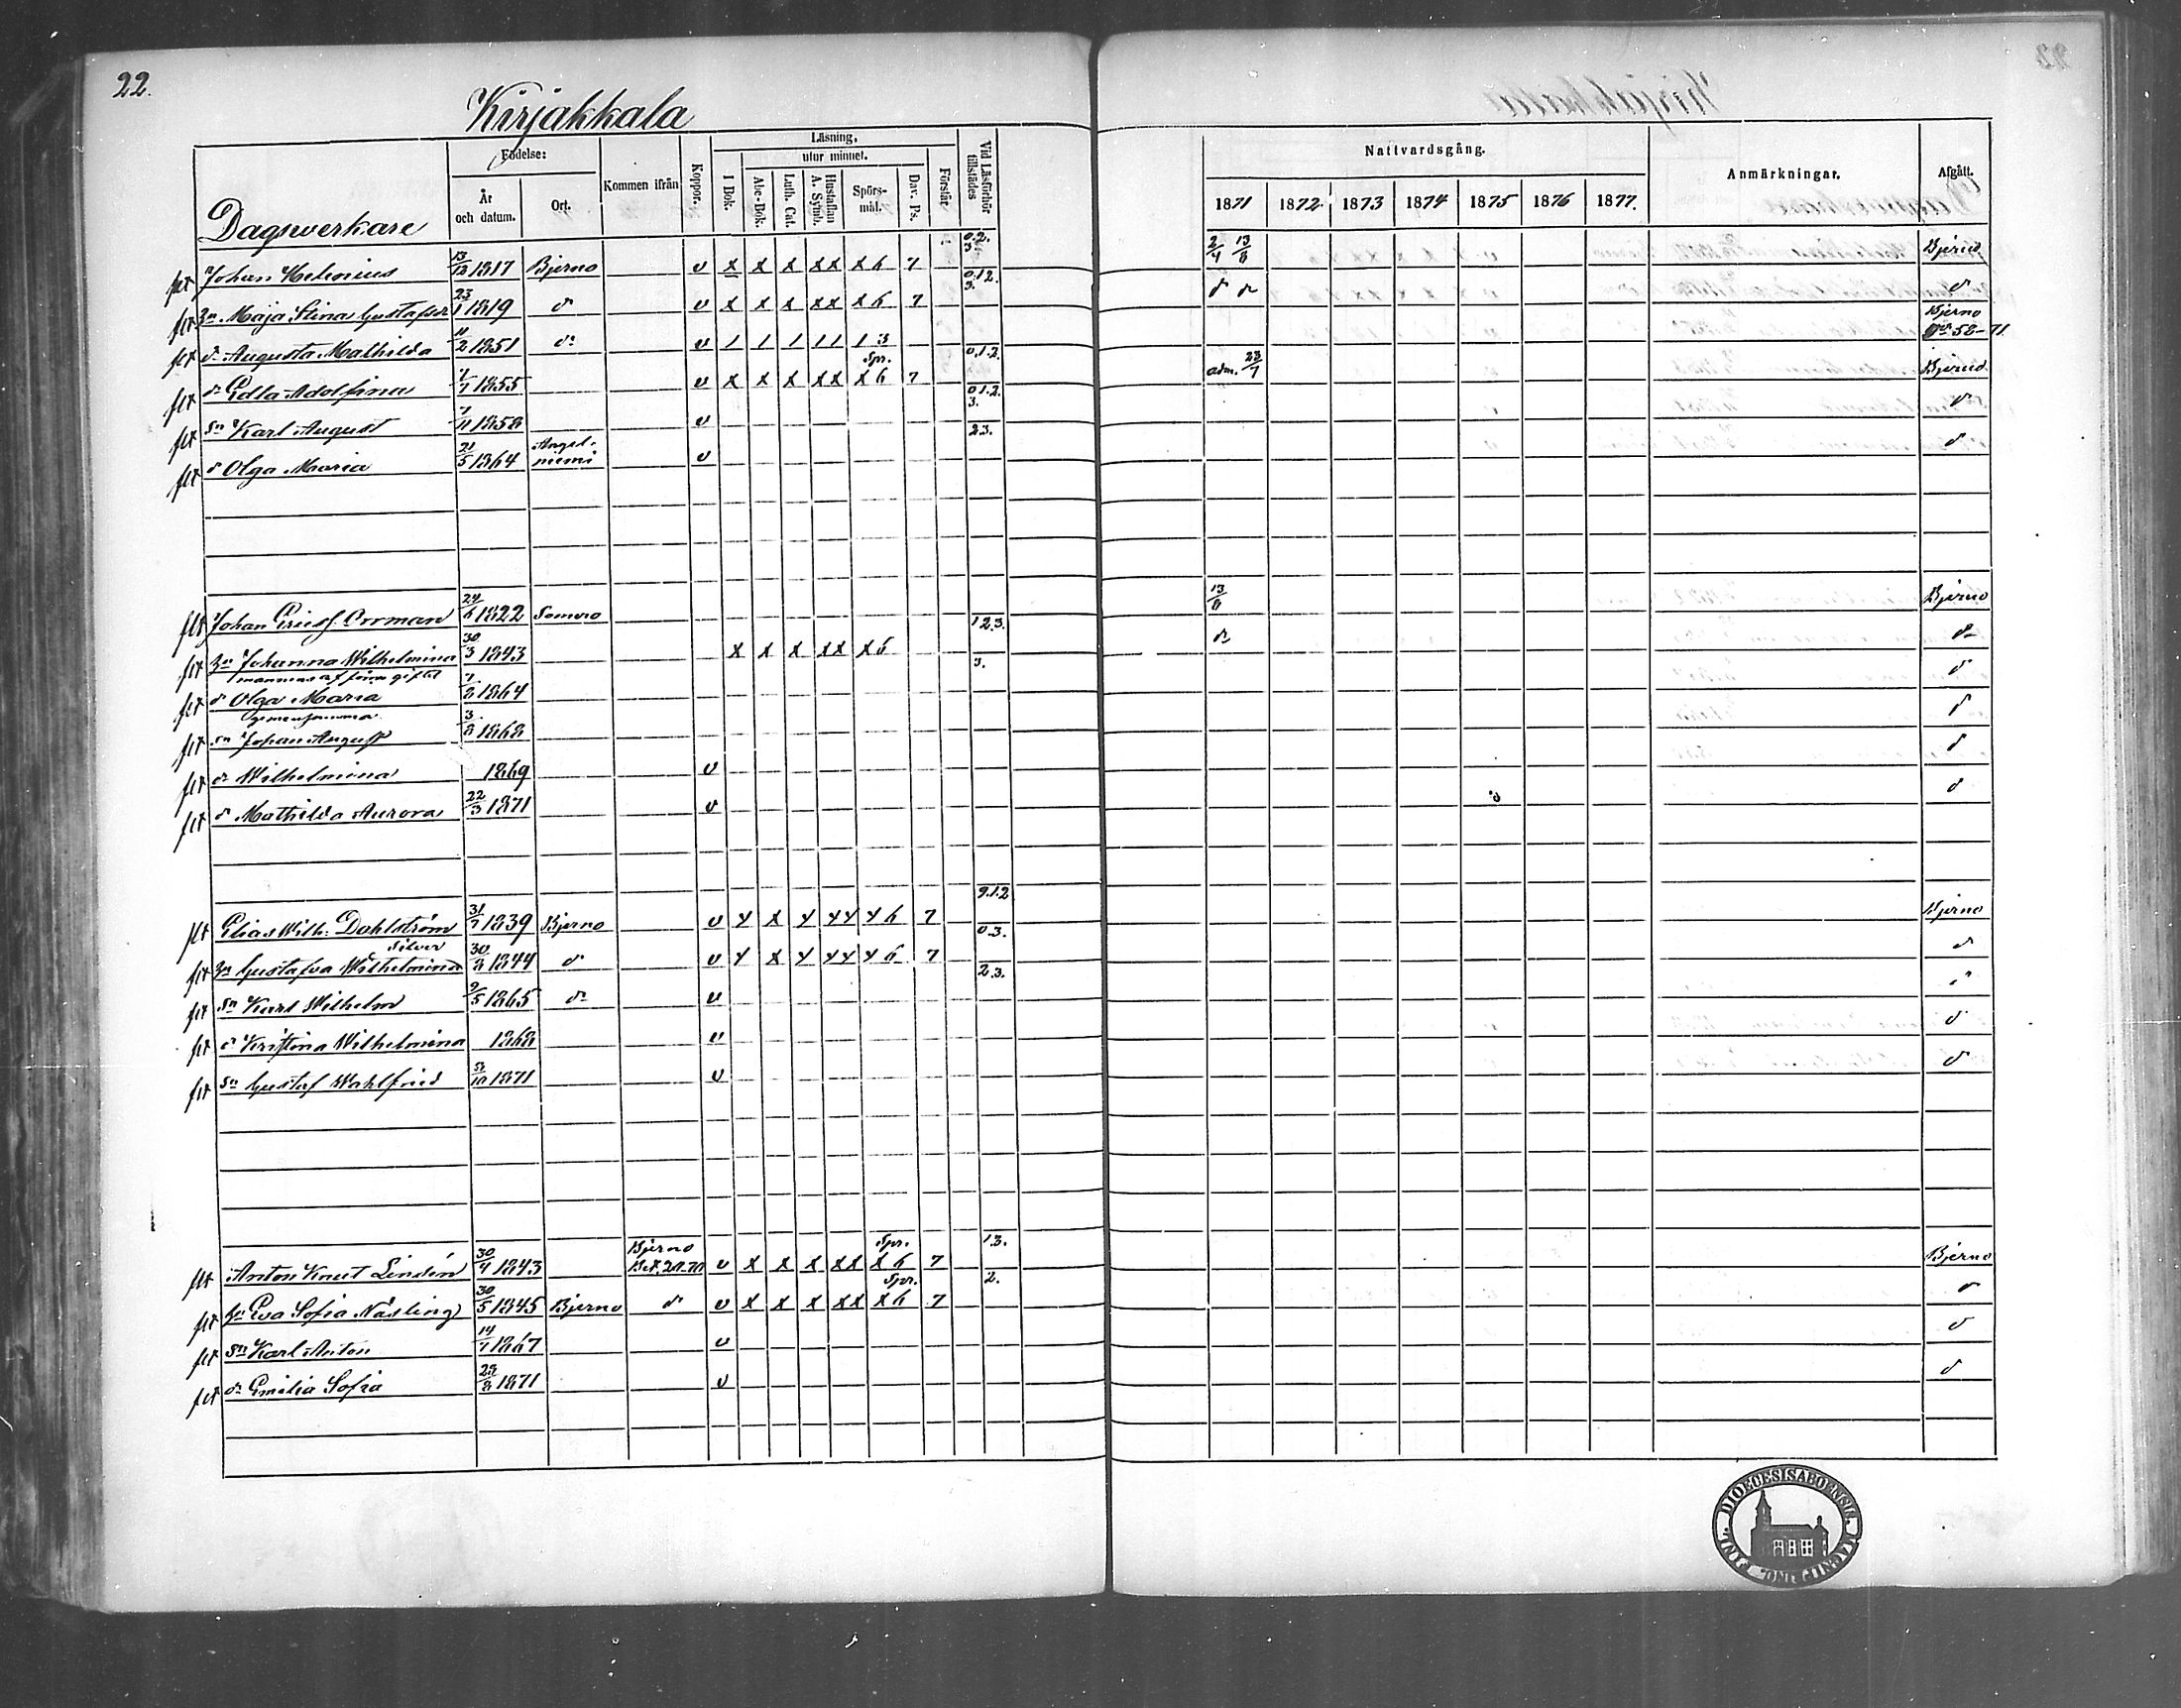 22.
Kirjakkala
Födelse: Kommen ifrån Koppor. Läsning. Vid Läsförhör tillstädes Nattvardsgång. Anmärkningar. Afgått.
utur minnet.
År och datum. Ort. I Bok. Abc-Bok. Luth. Cat. Hustaflan A. Symb. Spörsmål. Dav. Ps. Förstår. 1871 1872. 1873 1874 1875 1876 1877.
Dagsverkare
flt Johan Helenius 13/12 1817 Bjerno v x x x xx x 6 7 0.2. 3. 2/4 13/8 Bjerno
flt Maja Stina Gustafsd. 23/1 1819 do v x x x xx x 6 7 0.1.2. 3. do do do
flt dr Augusta Mathilda 11/2 1851 do v 1 1 1 11 1 3 Bjerno No 58-71
flt dr Edla Adolfina 7/7 1855 v x x x xx Spr. x 6 7 0.1.2. adm. 23/7 Bjerno
flt sn Karl August 7/11 1858 v 0.1.2. 3. do
flt d Olga Maria 21/5 1864 Angelniemi v 23. do
flt Johan Ericss. Orrman 24/6 1822 Somero 13/8 Bjerno
flt Johanna Wilhelmina 30/3 1843 x x x xx x6 1.2.3. do do
mannens af förra giftet
flt dr Olga Maria 7/2 1864 3. do
gemensamma
flt sn Johan August 3/8 1868 do
flt dr Wilhelmina 1869 v do
flt d Mathilda Aurora 22/3 1871 v do
flt Elias Wilh. Dahlström 31/7 1839 Bjerno v x x x xx x 6 7 9.1.2 Bjerno
Silver
flt Gustafva Wilhelmina 30/8 1844 do v x x x xx x 6 7 0.3. do
flt sn Karl Wilhelm 9/5 1865 do v 2.3.
flt d Kristina Wilhelmina 1868 v do
flt sn Gustaf Wahlfrid 5/10 1871 v do
flt Anton Knut Lindén 30/4 1843 Bjerno v x x x xx Spr. x 6 7 1.3. Bjerno
flt Eva Sofia Näsling 30/5 1845 Bjerno do v x x x xx Spr. x 6 7 2. do
flt sn Karl Anton 14/7 1867 v do
flt dr Emilia Sofia 29/8 1871 v do